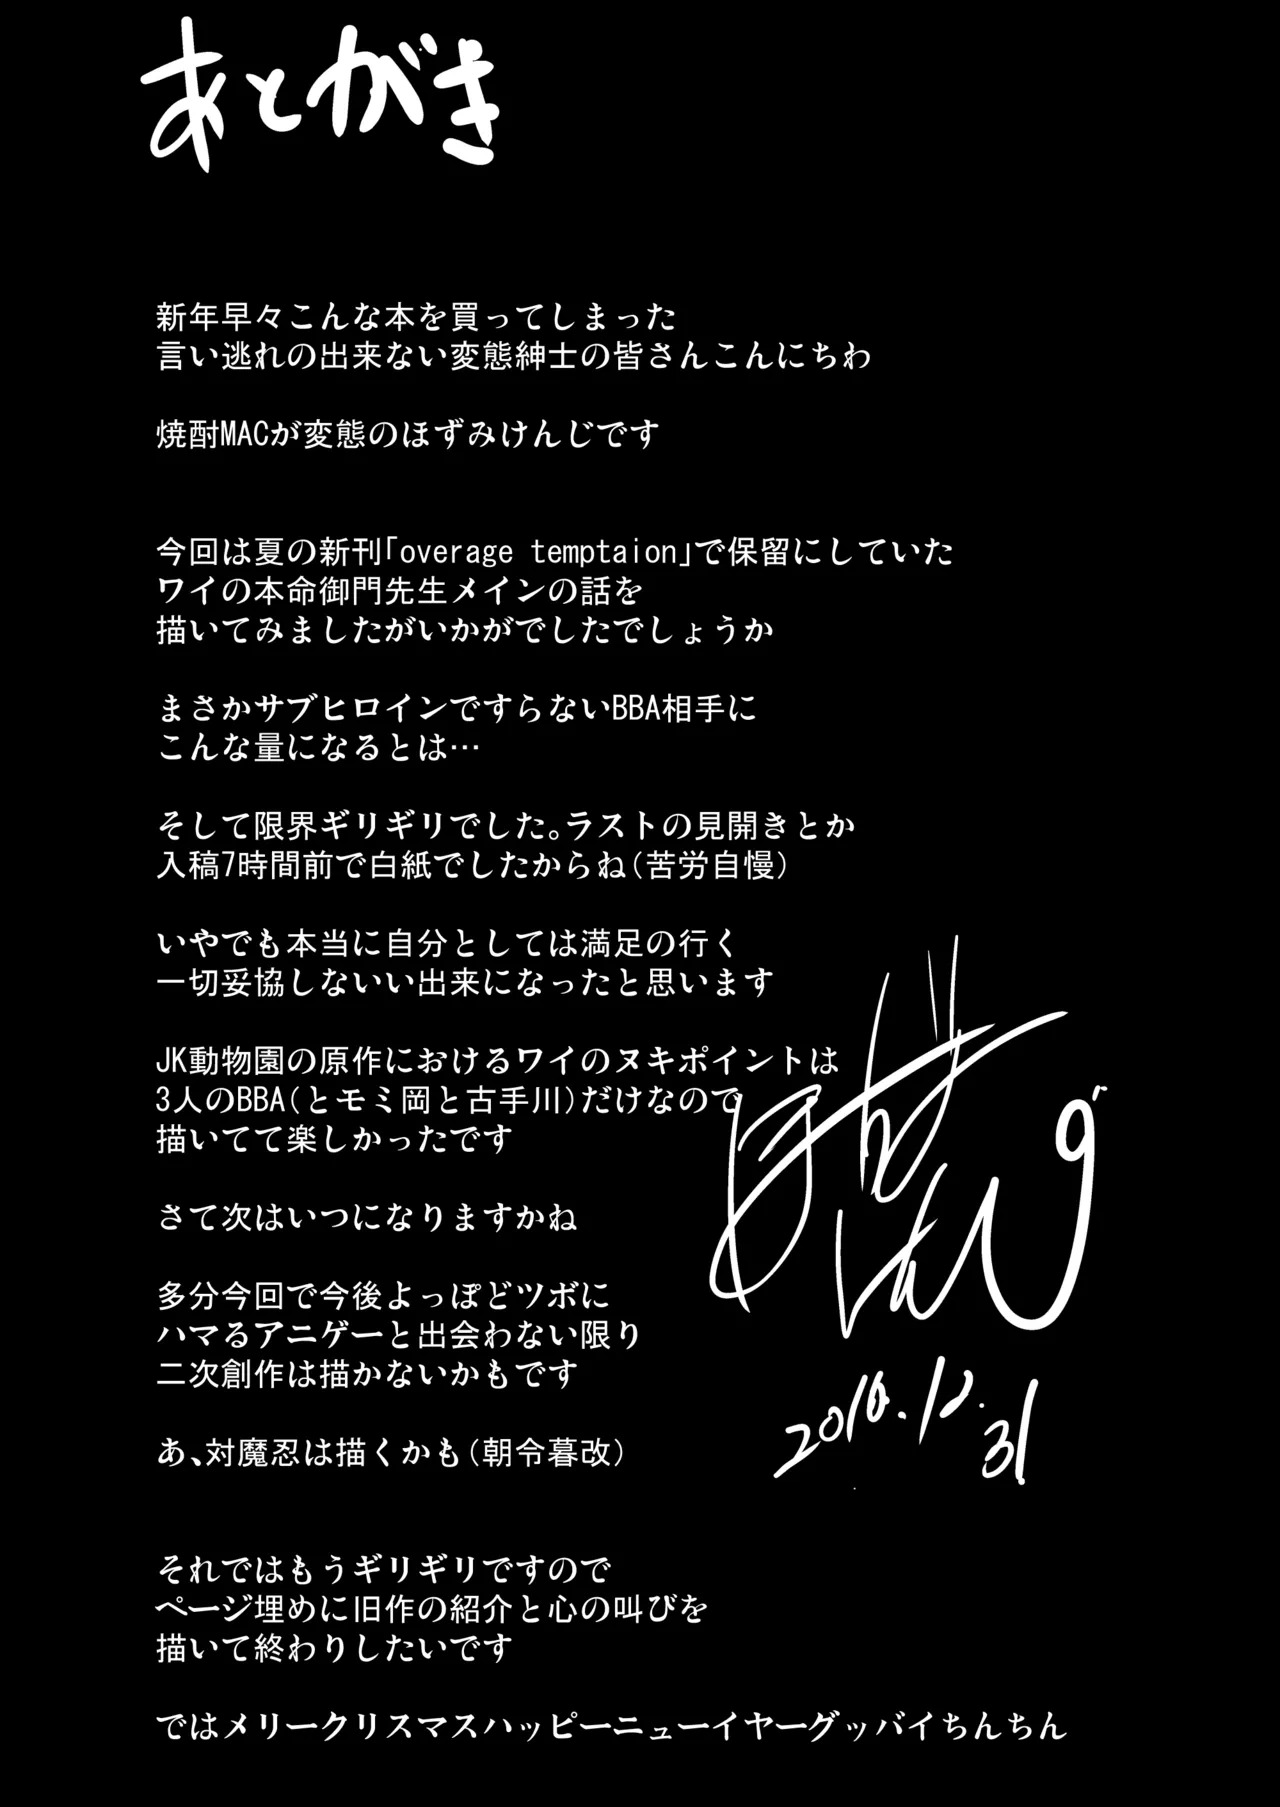 あとがき
新年早々こんな本を買ってしまった
言い逃れの出来ない変態紳士の皆さんこんにちわ
焼酎MACが変態のほずみけんじです
今回は夏の新刊｢overage temptaion｣で保留にしていた
ワイの本命御門先生メインの話を
描いてみましたがいかがでしたでしょうか
まさかサブヒロインですらないBBA相手に
こんな量になるとは…
そして限界ギリギリでした｡ラストの見開きとか
入稿7時間前で白紙でしたからね(苦労自慢)
いやでも本当に自分としては満足の行く
一切妥協しないいい出来になったと思います
JK動物園の原作におけるワイのヌキポイントは
3人のBBA(とモミ岡と古手川)だけなので
描いてて楽しかったです
さて次はいつになりますかね
多分今回で今後よっぽどツボに
ハマるアニゲーと出会わない限り
二次創作は描かないかもです
あ､対魔忍は描くかも(朝令暮改)
それではもうギリギリですので
ページ埋めに旧作の紹介と心の叫びを
描いて終わりしたいです
ではメリークリスマスハッピーニューイヤーグッバイちんちん